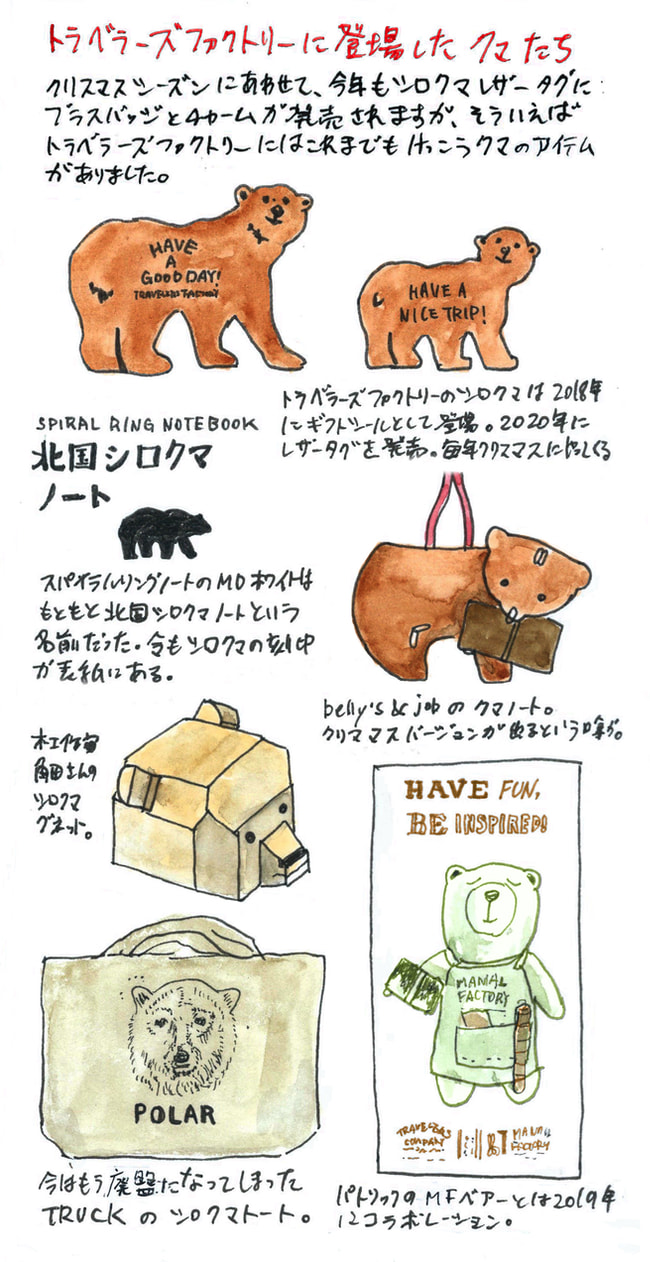 トラベラーズファクトリーに登場したクマたち
クリスマスシーズンにあわせて、今年もシロクマレザータグに
ブラスバッジとチャームが発売されますが、そういえば
トラベラーズファクトリーにはこれまでもけっこうクマのアイテム
がありました。
HAVE
A
GOOD DAY!
TRAVELERS FACTORY
HAVE A
NICE TRIP!
トラベラーズファクトリーのシロクマは2018年
にギフトシールとして登場。2020年に
レザータグを発売。毎年クリスマスにやってくる
SPIRAL RING NOTEBOOK
北国シロクマ
ノート
スパイラルリングノートのMDホワイトは
もともと北国シロクマノートという
名前だった。今もシロクマの刻印
が表紙にある。
belly's & jobのクマノート。
クリスマスバージョンが出るという噂が。
木工作家
角田さんの
シロクマ
グネット。
HAVE FUN,
BE INSPIRED!
MANIAL
FACTORY
TRAVELERS
COMPANY
POLAR
今はもう廃盤になってしまった
TRUCKのシロクマトート。
パトリックのMFベアーとは2019年
にコラボレーション。